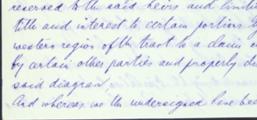 reserved to the said heirs and limited
title and interest to certain portions of
western region of the tract to a claim
by certain other parties and properly
said diagram,
And whereas we the undersigned have been